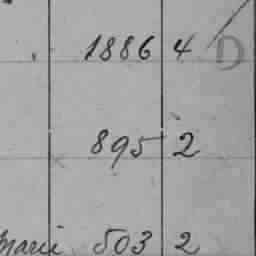 1886 4 D
895 2
Marie 503 2